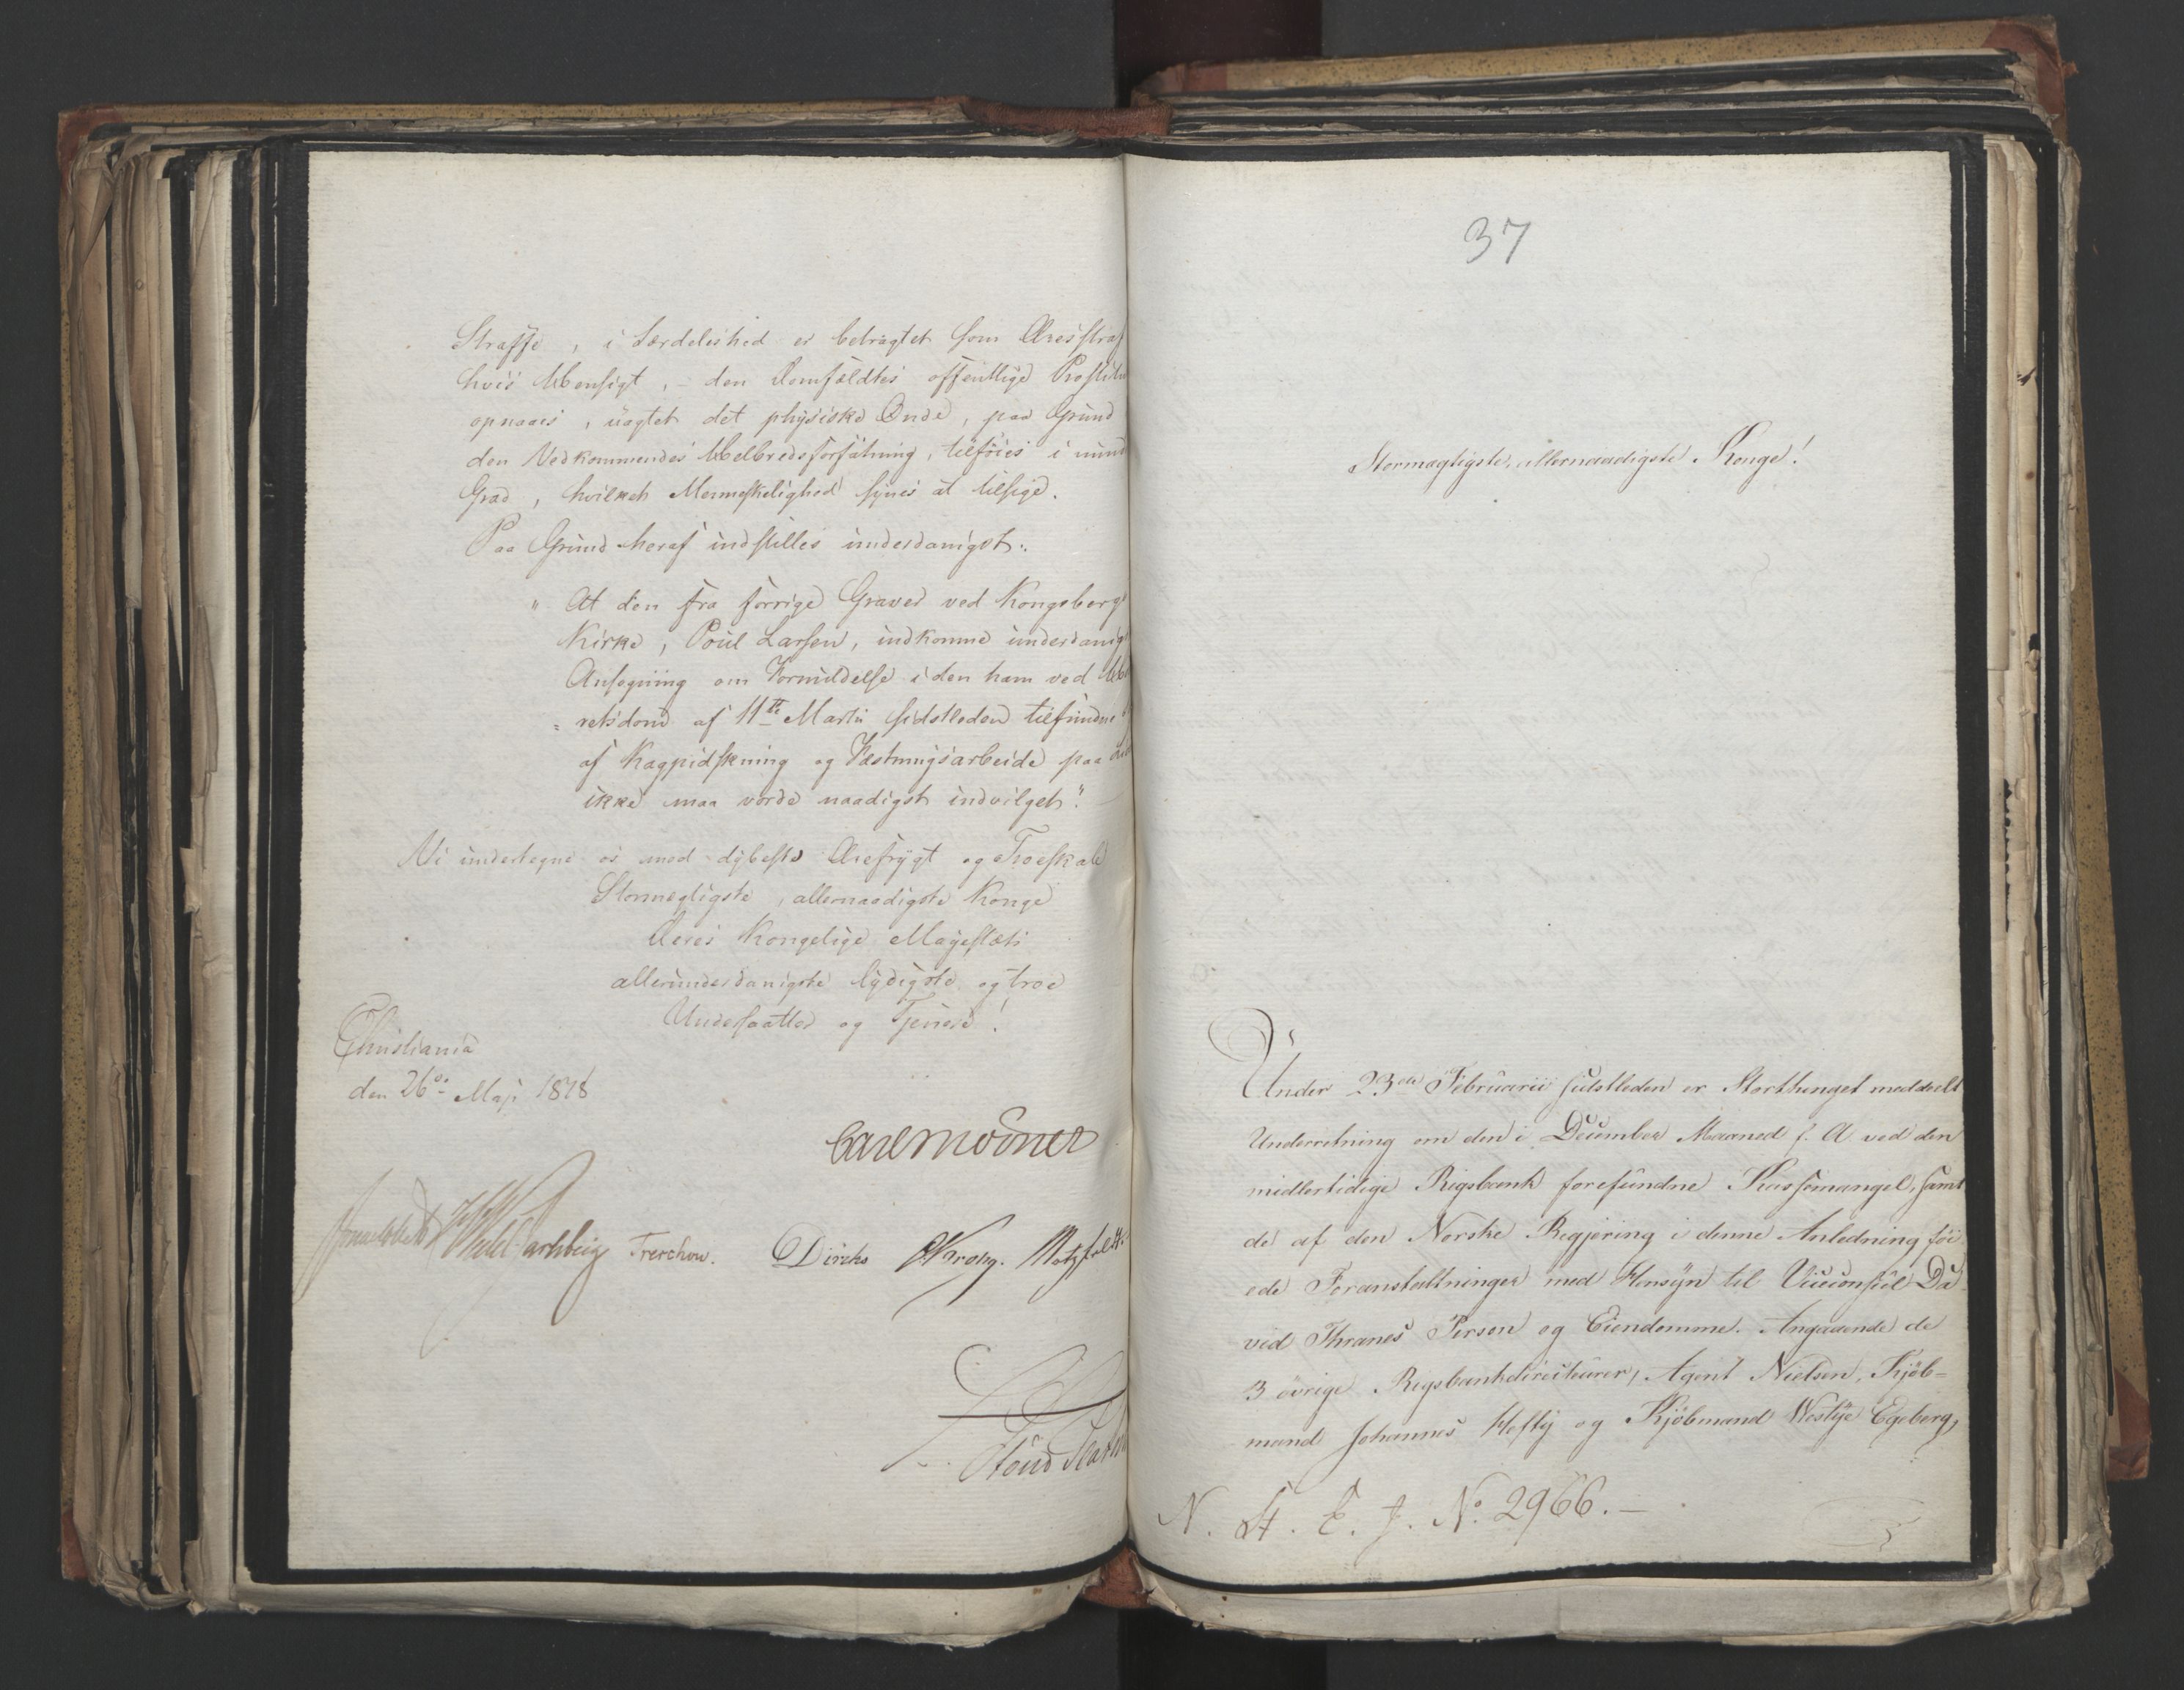 Straffe, i Særdeleshed er betragtet som Æresstraf
hvis Hensigt, - den Domfældtes offentlige Prostitu
opnaaes, uagtet det physiske Onde, paa Grund
den Vedkommendes Helbredsforfatning, tilføies i mind
Grad, hvilket Menneskelighed synes at tilsige.
Paa Grund heraf indstilles underdanigst:
" At den fra forrige Graver ved Kongsberg
Kirke, Poul Larsen, indkomne underdanig
Ansøgning om Formildelse i den ham ved
retsdom af 11te Martii sidstleden tilfundne
af Kagpidskning og Fæstningsarbeide paa
ikke maa vorde naadigst indvilget".
Vi undertegne os med dybeste Ærefrygt og Troeskab
Stormægtigste, allernaadigste Konge
Deres Kongelige Majestæts
allerunderdanigste lydigste og troe
Undersaatter og Tjenere!
Christiania
den 26de Maji 1818
Carl Mörner
Sommerhielm Wedel Jarlsberg Treschow. Diriks Krog. Motzfeldt.
37
Stormægtigste, allernaadigste Konge!
Under 23de Februarii sidstleden er Storthinget meddeelt
Underretning om den i December Maaned f. A. ved den
midlertidige Rigsbank forefundne Kassemangel, samt
de af den Norske Regjering i denne Anledning föi
ede Foranstaltninger med Hensyn til Viceconsul Da
vid Thranes Person og Eiendomme. Angaaende de
3 övrige Rigsbankdirecteurer, Agent Nielsen, Kjöb=
mand Johannes Hefty og Kjöbmand Westye Egeberg,
N. St. E. J. No. 2966. -